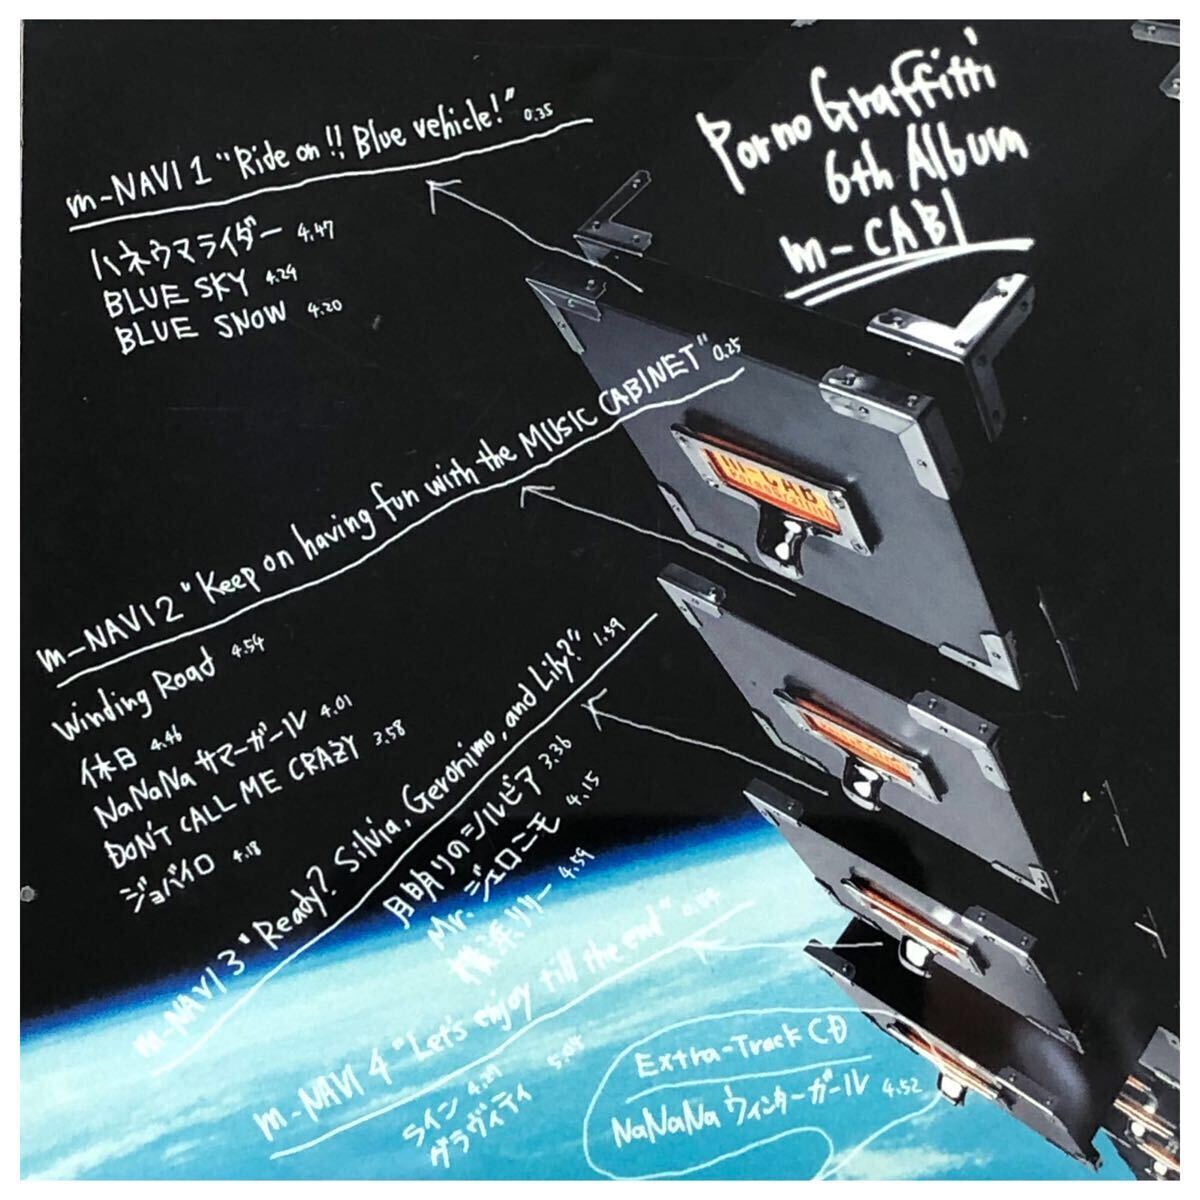 Porno Graffitti
6th Album
m-CABI
m-NAVI 1 "Ride on!! Blue vehicle!" 0.35
ハネウマライダー 4.47
BLUE SKY 4.29
BLUE SNOW 4.20
m-NAVI 2 "Keep on having fun with the MUSIC CABINET" 0.25
Winding Road 4.54
休日 4.46
NaNaNa サマーガール 4.01
DON'T CALL ME CRAZY 3.58
ジョバイロ 4.18
m-NAVI 3 "Ready? Silvia, Geronimo, and Lily?" 1.59
月明りのシルビア 3.36
Mr. ジェロニモ 4.15
横浜リリー 4.59
m-NAVI 4 "Let's enjoy till the end"
ライン 4.21
グラヴィティ
Extra-Track CD
NaNaNa ウィンターガール 4.52
m-CAB